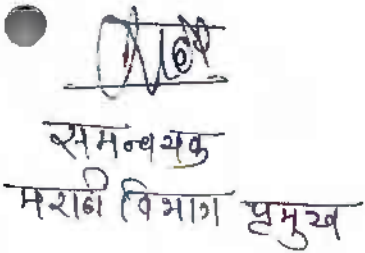 समन्वयक
मराठी विभाग प्रमुख